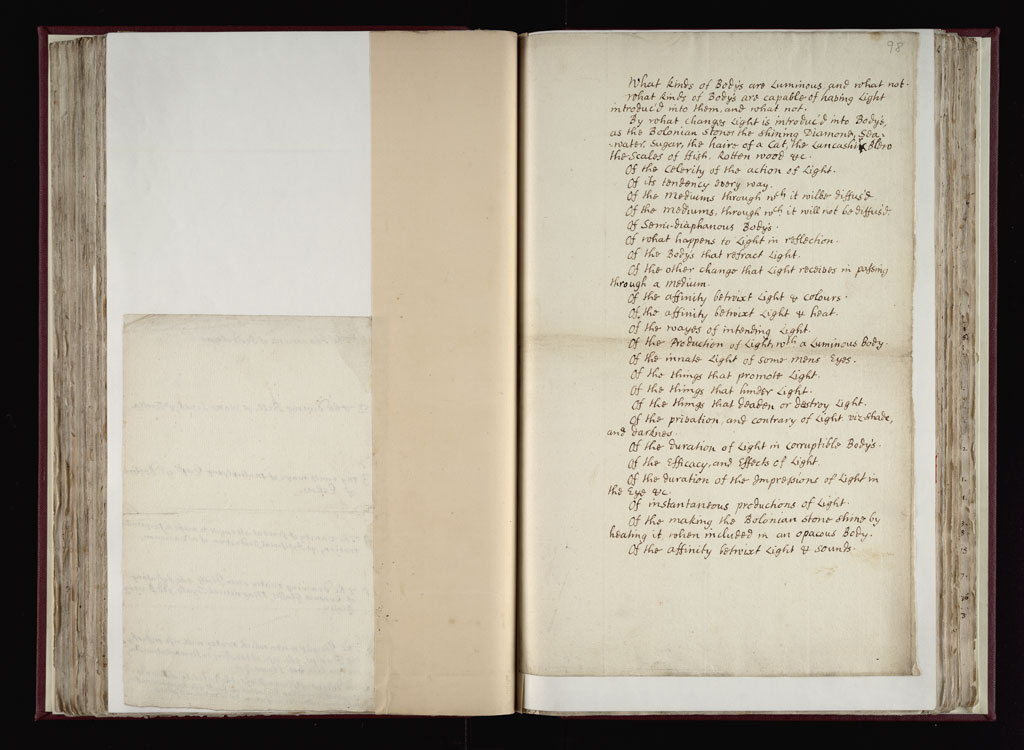 98
What kinds of Body's are Luminous, and what not.
What kinds of Body's are capable of having Light
introduc'd into them, and what not.
By what changes Light is introduc'd into Body's,
as the Bolonian Stone, the shining Diamond, Sea-
-water, Sugar, the haire of a Cat, the Lancashire
the Scales of ffish, Rotten wood &c.
Of the Celerity of the action of Light.
Of its tendency every way.
Of the Mediums through wch it wilbe diffus'd.
Of the Mediums, through wch it will not be diffus'd.
Of Semi-diaphanous Body's.
Of what happens to Light in reflection.
Of the Body's that refract Light.
Of the other change that Light receives in passing
through a Medium.
Of the affinity betwixt Light & Colours.
Of the affinity betwixt Light & heat.
Of the wayes of intending Light.
Of the Production of Light, wth a Luminous Body.
Of the innate Light of some mens Eyes.
Of the things that promote Light.
Of the things that hinder Light.
Of the things that deaden or destroy Light.
Of the privation, and contrary of Light viz. shade,
and darknes.
Of the duration of Light in Corruptible Body's.
Of the Efficacy, and Effects of Light.
Of the duration of the Impressions of Light in
the Eye &c.
Of instantaneous productions of Light.
Of the making the Bolonian stone shine by
heating it when included in an opacous Body.
Of the affinity betwixt Light & sounds.